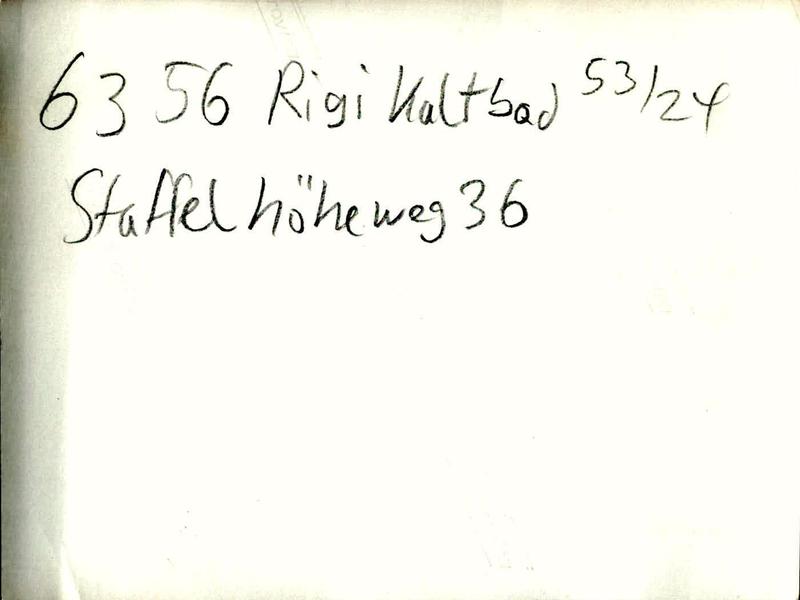 6356 Rigi Kaltbad 53/24
Staffelhöheweg 36